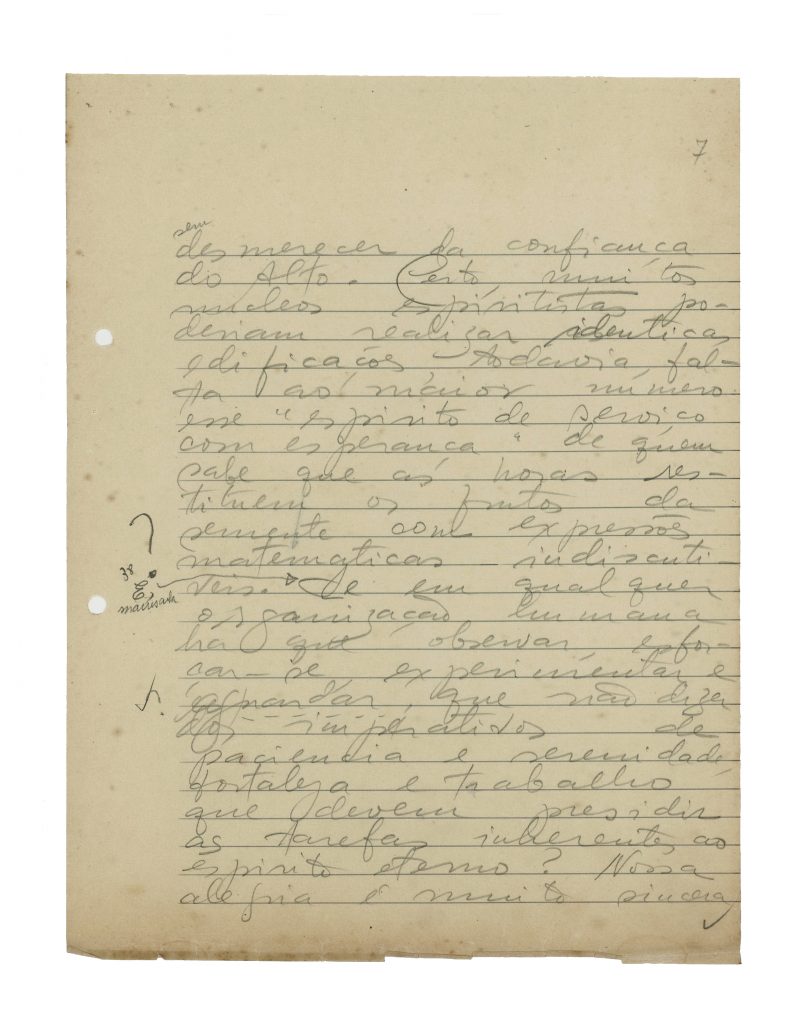 7
sem
desmerecer da confiança
do Alto. Certo, muitos
nucleos espiritistas po-
deriam realizar identicas
edificações, todavia, fal-
ta ao maior número
esse "espirito de serviço
com esperança" de quem
sabe que as horas res-
tituem os frutos da
semente com expressões
matematicas indiscuti-
veis. Se em qualquer
38
E,
maiúscula
organização humana
ha que observar, esfor-
çar-se, experimentar e
aguardar, que não dizer
dos imperativos de
paciencia e serenidade,
fortaleza e trabalho
que devem presidir
ás tarefas inherentes ao
espirito eterno? Nossa
alegria é muito sincera,